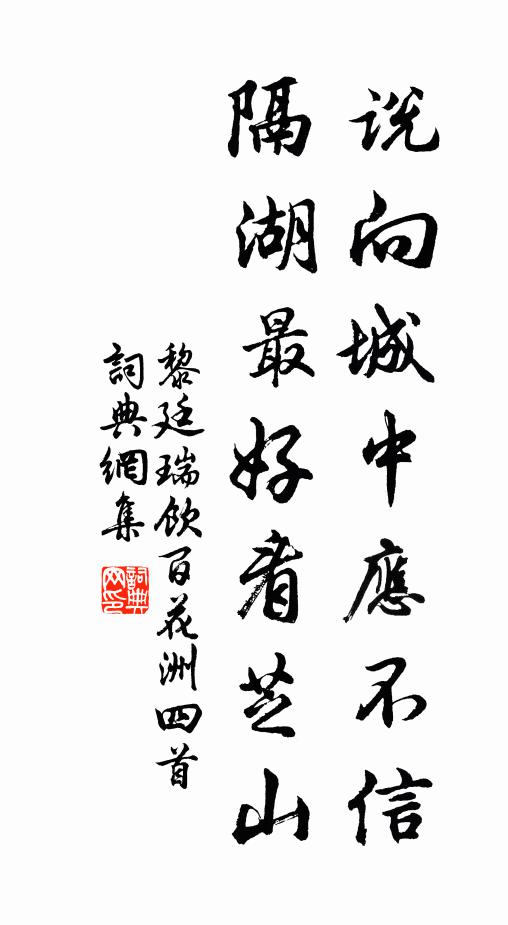 说向城中應不信
隔湖最好看芝山
黎廷瑞飲百花洲四首
詞典網集
詞典網印